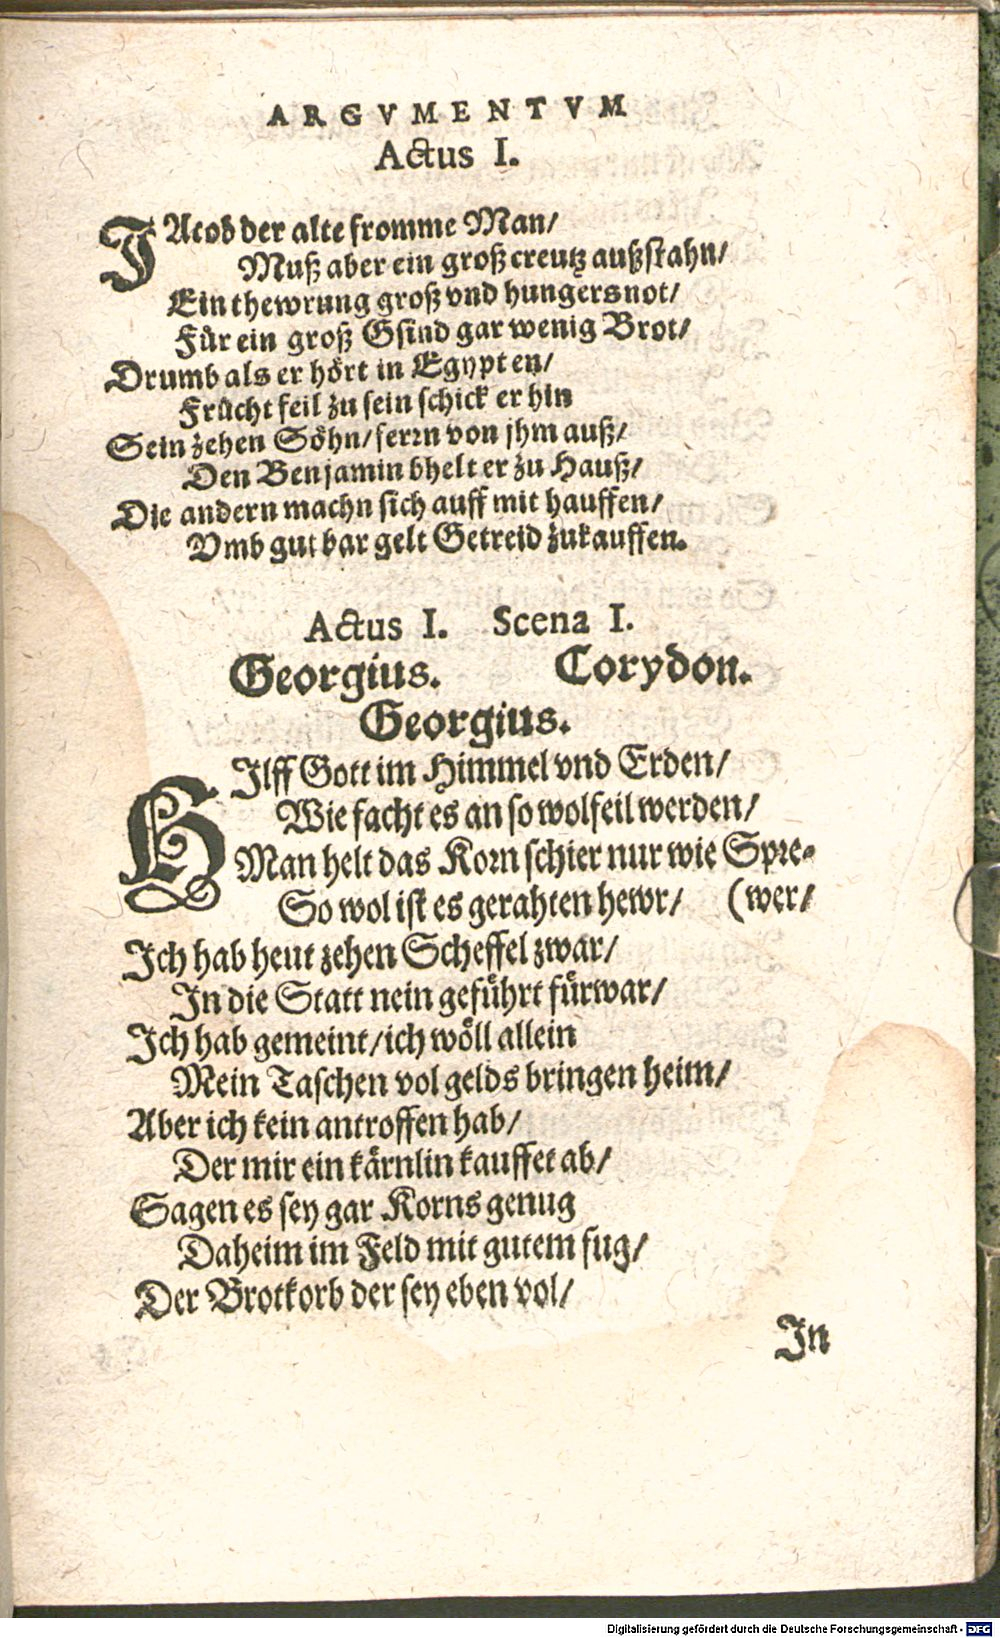 ARGVMENTVM
Actus I.
JAcob der alte fromme Man/
Muß aber ein groß creutz außstahn/
Ein thewrung groß vnd hungersnot/
Für ein groß Gsind gar wenig Brot/
Drumb als er hört in Egypten/
Frücht feil zu sein schick er hin
Sein zehen Söhn/ ferrn von jhm auß/
Den Benjamin bhelt er zu Hauß/
Die andern machn sich auff mit hauffen/
Vmb gut bar gelt Getreid zukauffen.
Actus I. Scena I.
Georgius. Corydon.
Georgius.
HJlff Gott im Himmel vnd Erden/
Wie facht es an so wolfeil werden/
Man helt das Korn schier nur wie Spre-
So wol ist es gerahten hewr/ (wer/
Jch hab heut zehen Scheffel zwar/
Jn die Statt nein geführt fürwar/
Jch hab gemeint/ ich wöll allein
Mein Taschen vol gelds bringen heim/
Aber ich kein antroffen hab/
Der mir ein kärnlin kauffet ab/
Sagen es sey gar Korns genug
Daheim im Feld mit gutem fug/
Der Brotkorb der sey eben vol/
Jn
Digitalisierung gefördert durch die Deutsche Forschungsgemeinschaft - DFG